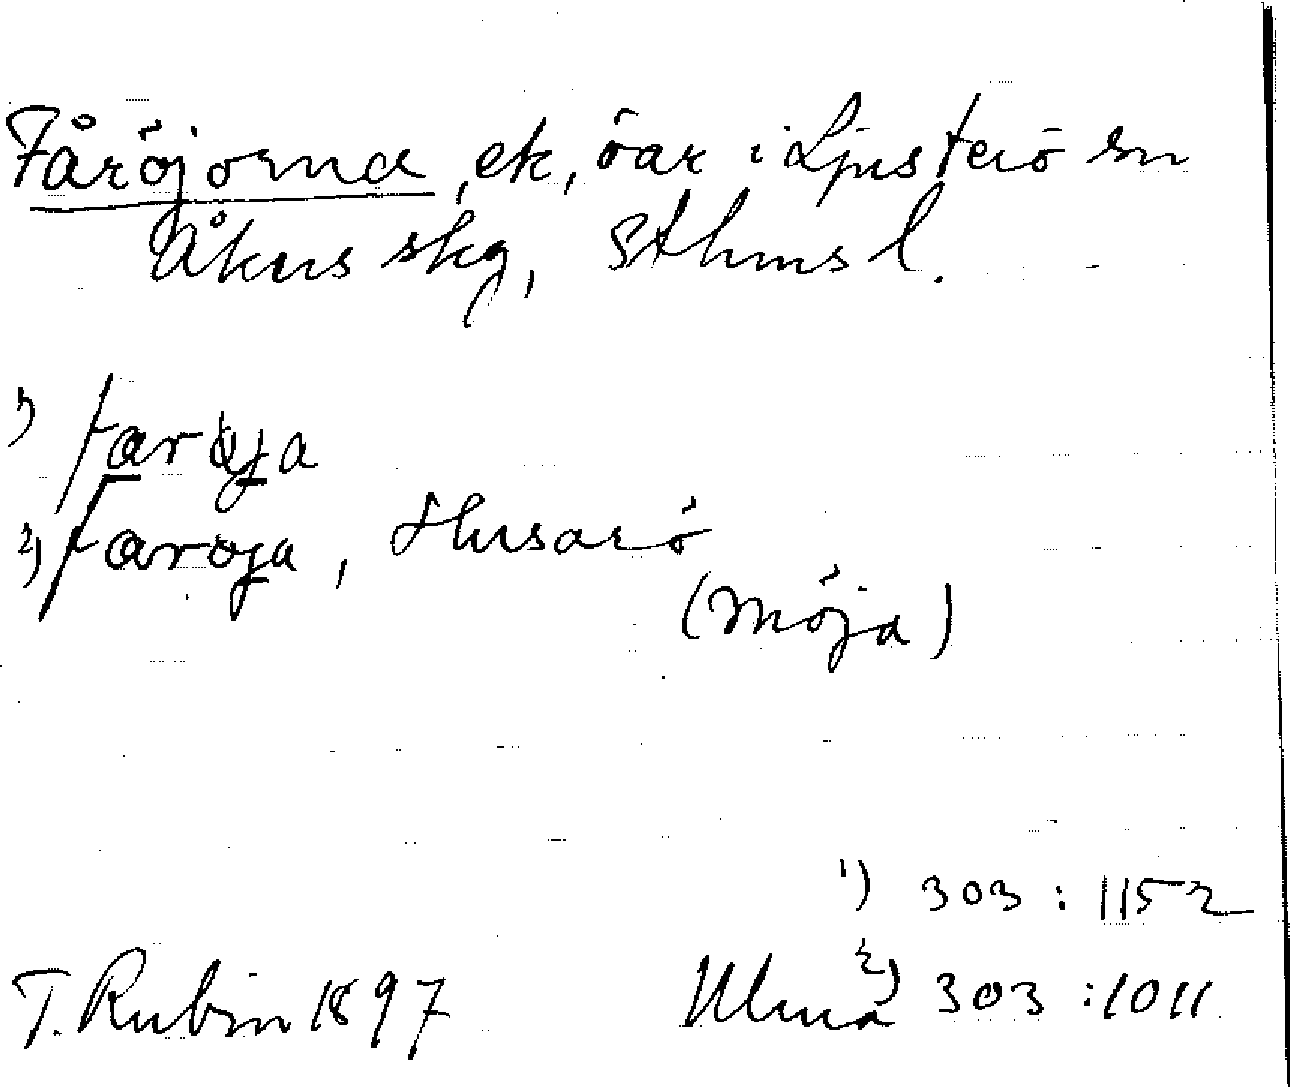 Fåröjorna, ek, öar i Ljusterö sn
Åkers skg, Sthms l.
1) faroja
2) faroja, Husarö
(Möja)
1) 303:1152
T. Rubin 1897 Ulma 2) 303:1011